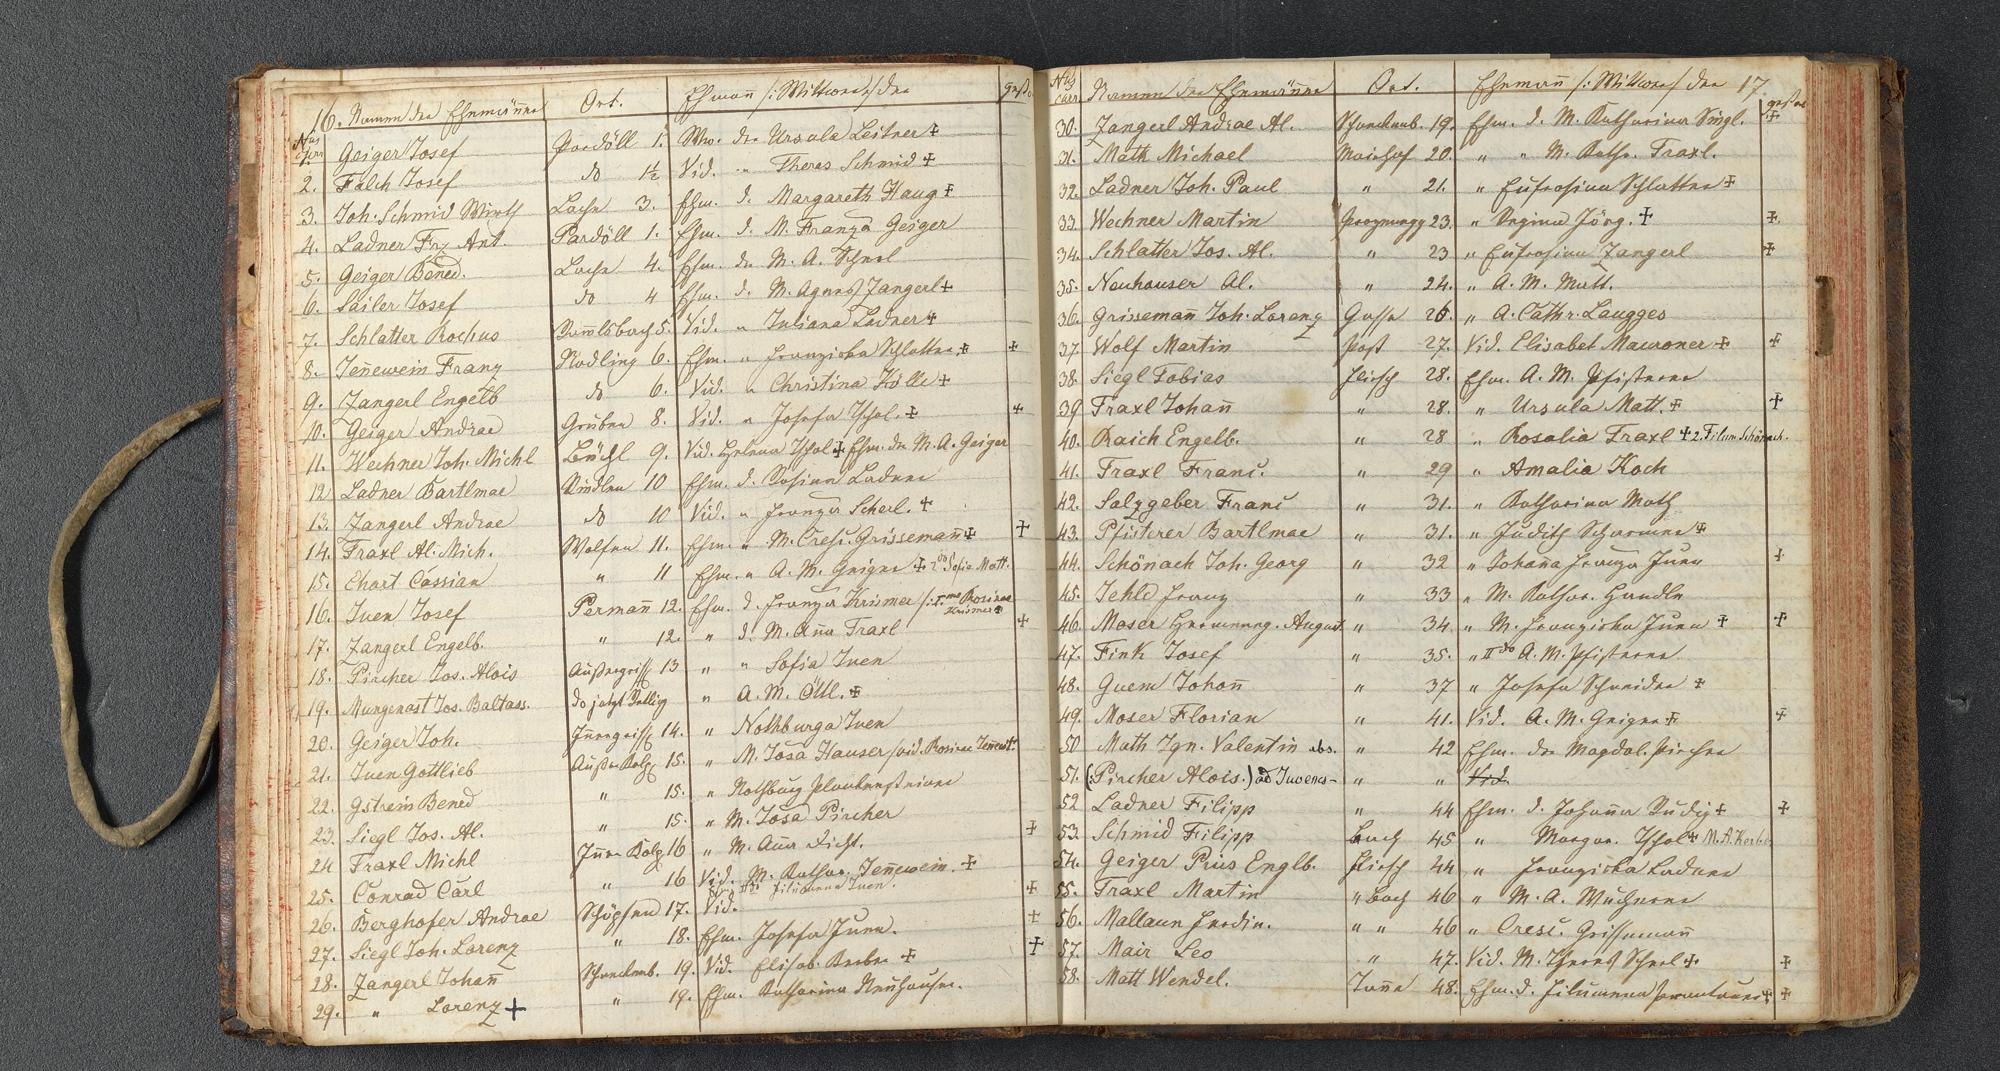 16. Namen der Ehemänner Ort. Ehmann /: Wittwer / der
1. Geiger Josef Pardöll 1. Ww. der Ursula Leitner +
2. Falch Josef do 1½ Vid. " Theres Schmid +
3. Joh. Schmid Wirth 3. Ehm. d. Margareth Haug +
4. Ladner Frz Ant. Pardöll 1. Ehm. d. M. Franza Geiger
5. Geiger Bened. 4. Ehm. der M. A.
6. Sailer Josef do 4 Ehm. d. M. Agnes Zangerl +
7. Schlatter Rochus 5. Vid. " Juliana Ladner +
8. Jeñewein Franz Rodling 6. Ehm. " Franziska Schlatter + +
9. Zangerl Engelb do 6. Vid. " Christina Kölle +
10. Geiger Andrae Gruben 8. Vid. " Josefa Tschol. + +
11. Wechner Joh. Michl Büchl 9. Vid. Helena Tschol + Ehm. der M. A. Geiger
12 Ladner Bartlmae 10 Ehm. d. Rosina Ladner
13. Zangerl Andrae do 10 Vid. " Franza Scherl. +
14. Traxl Al. Mich. Wolfen 11. Ehm. " M. Cresc. Grissemañ + +
15. Ehart Cassian " 11 Ehm. " A. M. Geiger + 2do Sofia Matt.
16. Juen Josef Permañ 12. Ehm. d. Franza Krismer /: I.me Rosina Krismer +
17. Zangerl Engelb. " 12. " d. M. Aña Traxl +
18. Pircher Jos. Alois Außergriss 13 " " Sofia Juen
19. Mungenast Jos. Baltass. do jetzt " A. M. Öttl. +
20. Geiger Joh. Innergriss 14. " Nothburga Juen
21. Juen Gottlieb Außer Kolp 15. " M. Josa Hauser / vid. Rosina Jeñew.
22. Gstrein Bened " 15. " Nothburg
23. Siegl Jos. Al. " 15. " M. Josa Pircher
24 Traxl Michl Inner Kolp 16 " M. Aña +
25. Conrad Carl " 16 Vid. M. Kathar. Jeñewein. +
IIdo Filumena Juen.
26. Berghofer Andrae Schöpfen 17. Vid. +
27. Siegl Joh. Lorenz " 18. Ehm. Josefa Juen. +
28. Zangerl Johañ 19. Vid. Elisab. Kerber + +
29. " Lorenz + " 19. Ehm. Katharina Neuhauser.
Namen der Ehemänner Ort. Ehmañ /: Wittwer / der 17.
30. Zangerl Andrae Al. 19. Ehm. d. M. Katharina Siegl. +
31. Math Michael Mairhof 20. " " M. Kathr. Traxl.
32. Ladner Joh. Paul " 21. " Eufrosina Schlatter +
33. Wechner Martin 23. " Regina Jörg. + +
34. Schlatter Jos. Al. " 23 " Eufrosina Zangerl +
35. Neuhauser Al. " 24. " A. M. Matt.
36. Grissemañ Joh. Lorenz Gasse 26. " A. Cathr. Laugges
37. Wolf Martin Post 27. Vid. Elisabet Mauroner + +
38. Siegl Tobias Flirsch 28. Ehm. A. M. Pfisterer
39 Traxl Johañ " 28. " Ursula Matt. + +
40. Raich Engelb. " 28 " Rosalia Traxl + 2. Filum. Schönach.
41. Traxl Franc. " 29 " Amalia Koch
42. Salzgeber Franc " 31. " Katharina Math
43. Pfisterer Bartlmae " 31. " Judith +
44. Schönach Joh. Georg " 32 " Johaña Franza Juen +
45. Jehle Franz " 33 " M. Kathar. Handle
46. Moser August " 34 " M. Franziska Juen + +
47. Fink Josef " 35. " IIdo A. M. Pfisterer
48. Guem Johañ " 37 " Josefa Schneider +
49. Moser Florian " 41. Vid. A. M. Geiger + +
50 Math Ign. Valentin abs. " 42 Ehm. der Magdal. Pircher
51. (: Pircher Alois :) ad Juvenes " " Vid.
52 Ladner Filipp " 44 Ehm. d. Johaña Rudig + +
53. Schmid Filipp Bach 45 " Margar. Tschol + M. A. Kerber
54. Geiger Pius Englb. Flirsch 44 " Franziska Ladner
55. Traxl Martin " Bach 46 " M. A.
56. Mallaun Ferdin. " " 46 " Cresc. Grissemañ
57. Mair Leo " 47. Vid. M. Theres + +
58. Matt Wendel. 48. Ehm. d. Filumena + +